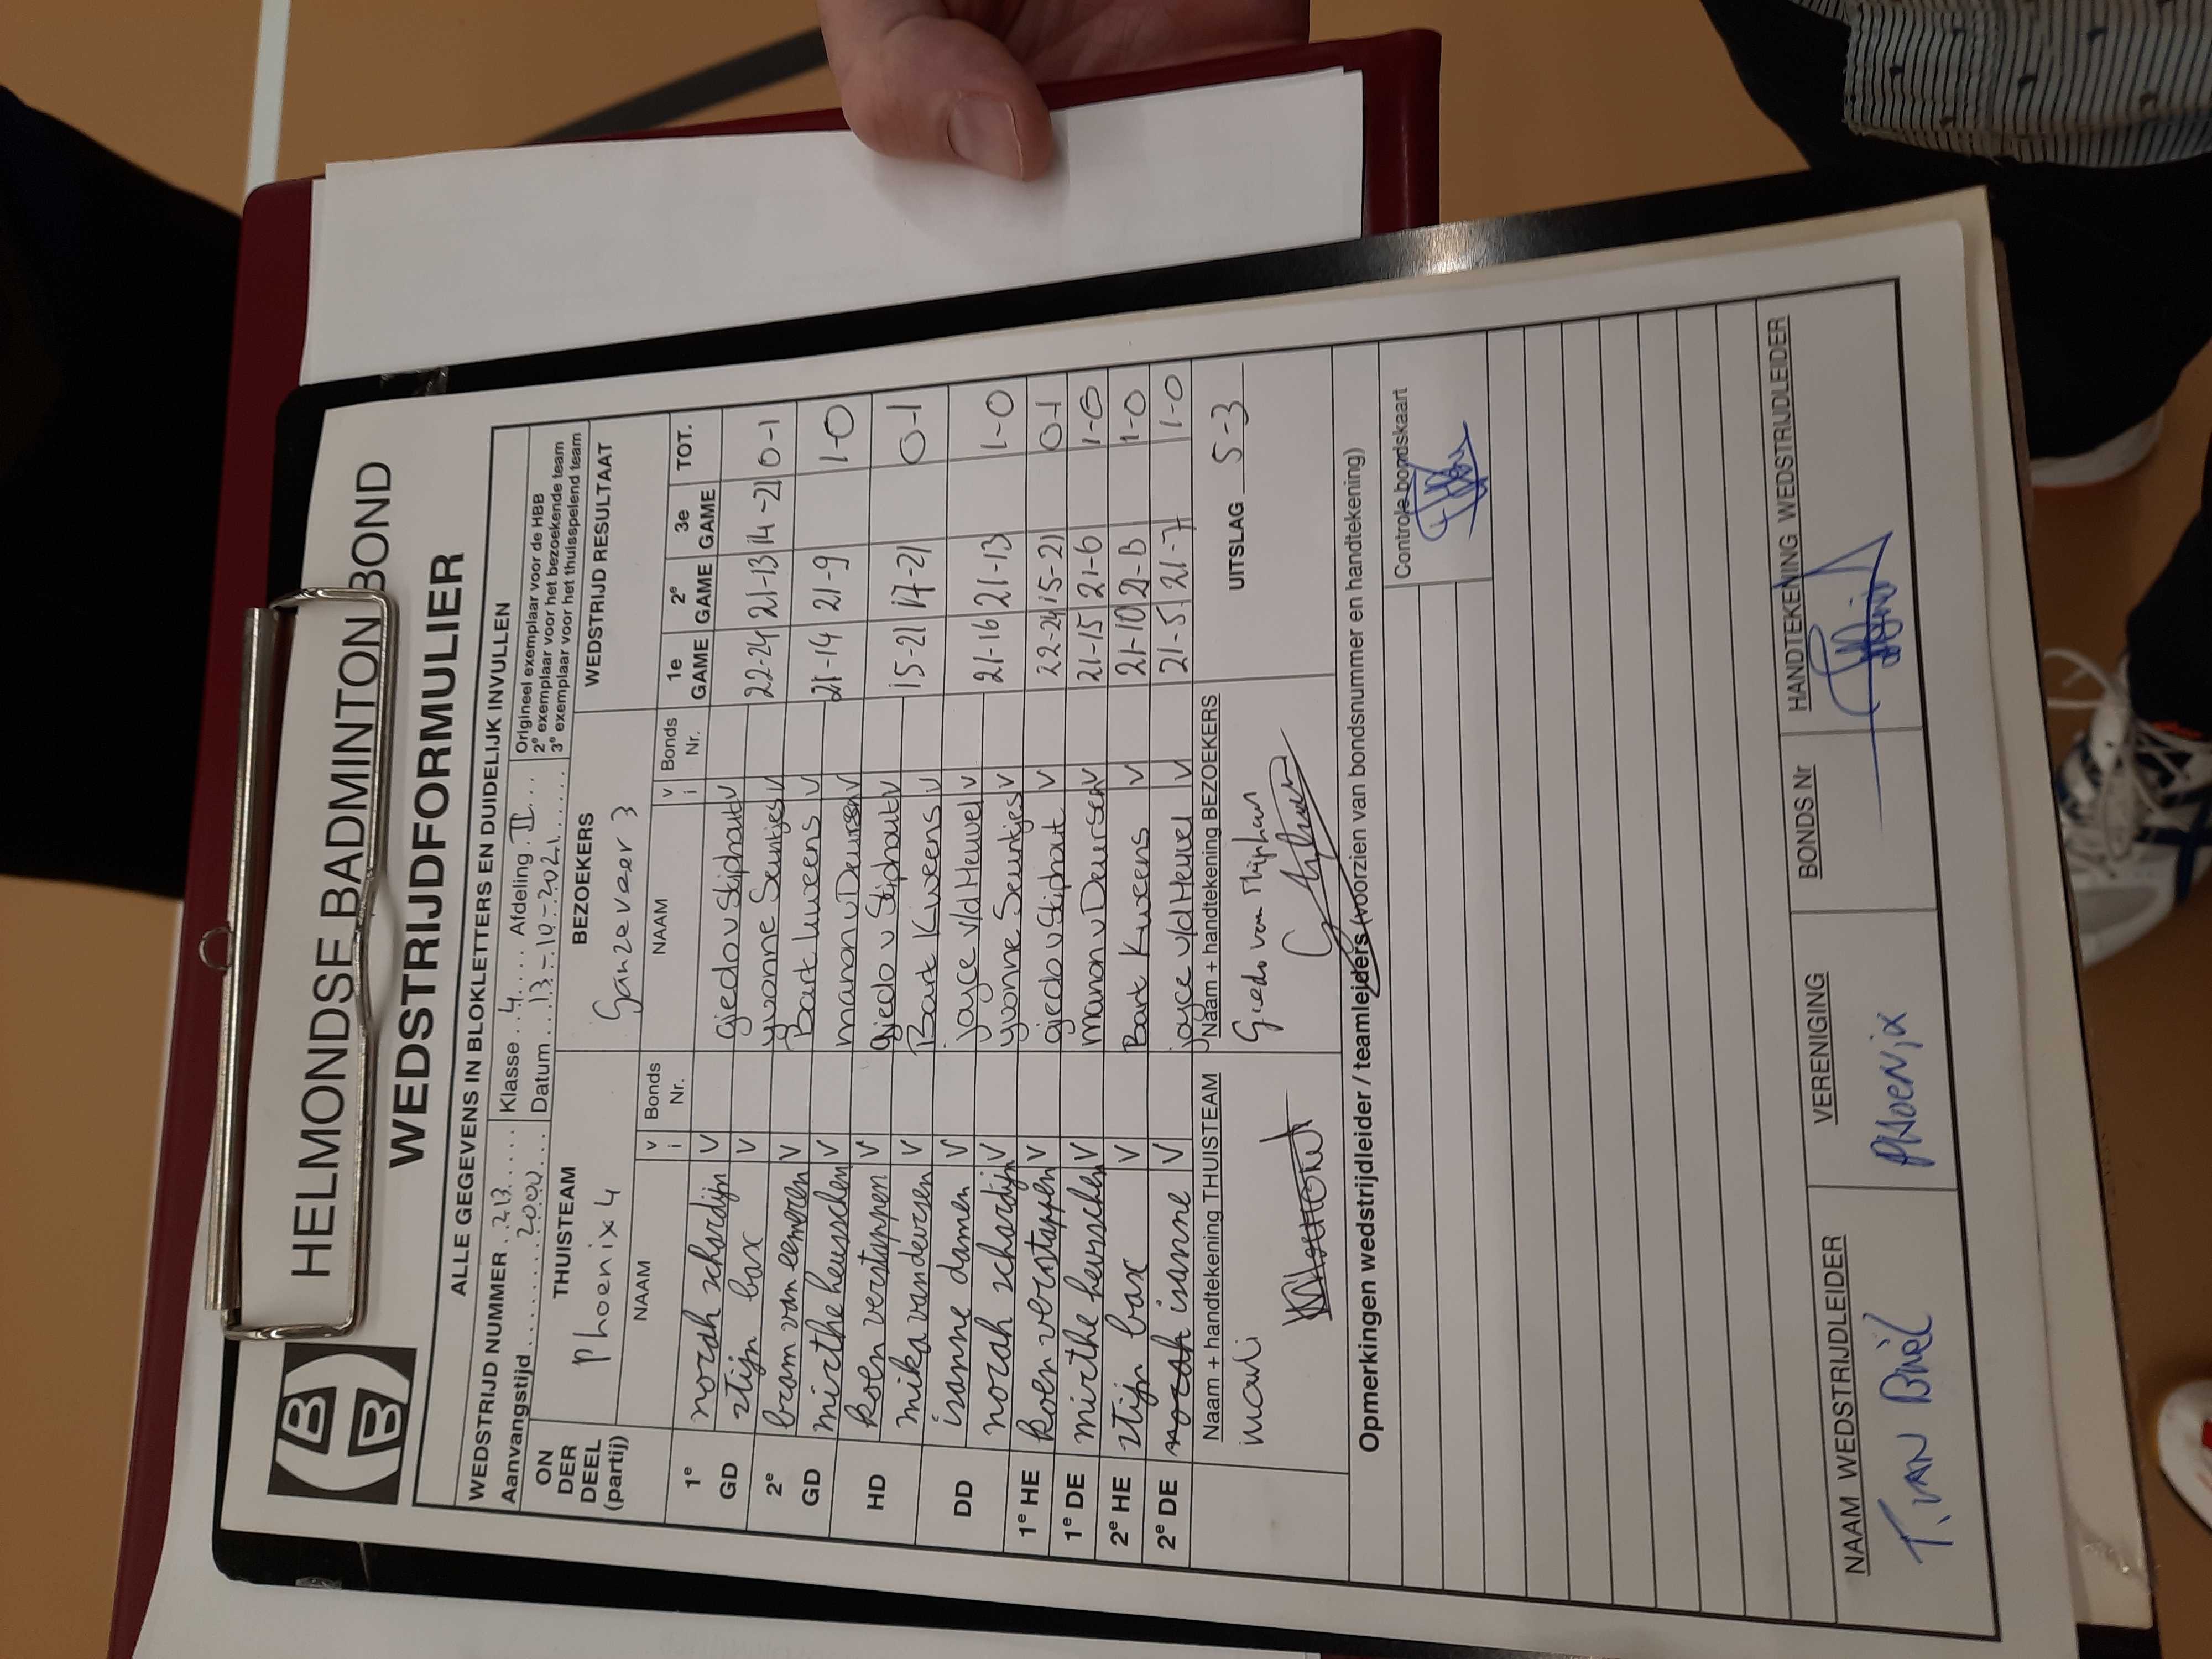 HELMONDSE BADMINTON BOND
WEDSTRIJDFORMULIER
ALLE GEGEVENS IN BLOKLETTERS EN DUIDELIJK INVULLEN
WEDSTRIJD NUMMER 213 Klasse 4 Afdeling II
Aanvangstijd 2000 Datum 13-10-2021
Origineel exemplaar voor de HBB
2e exemplaar voor het bezoekende team
3e exemplaar voor het thuisspelend team
ON DER DEEL (partij) THUISTEAM BEZOEKERS WEDSTRIJD RESULTAAT
Phoenix 4 Ganzeveer 3
NAAM v i Bonds Nr. NAAM v i Bonds Nr. 1e GAME 2e GAME 3e GAME TOT.
1e GD norah schardijn V giedo v Stiphout V 22-24 21-13 14-21 0-1
stijn bax V yvonne Seuntjes V
2e GD bram van eemeren V Bart Kuveens V 21-14 21-9 1-0
mirthe heusschen V manon v Deursen V
HD koen verstappen V giedo v Stiphout V 15-21 17-21 0-1
mika van deursen V Bart Kuveens V
DD isanne damen V joyce v/d Heuvel V 21-16 21-13 1-0
norah schardijn V yvonne Seuntjes V
1e HE koen verstappen V giedo v Stiphout V 22-24 15-21 0-1
1e DE mirthe heusschen V manon v Deursen V 21-15 21-6 1-0
2e HE stijn bax V Bart Kuveens V 21-10 21-13 1-0
2e DE norah isanne V joyce v/d Heuvel V 21-5 21-7 1-0
Naam + handtekening THUISTEAM Naam + handtekening BEZOEKERS UITSLAG 5-3
Giedo van Stiphout
Opmerkingen wedstrijdleider / teamleiders (voorzien van bondsnummer en handtekening)
Controle bondskaart
NAAM WEDSTRIJDLEIDER VERENIGING BONDS Nr HANDTEKENING WEDSTRIJDLEIDER
T. VAN Briel Phoenix